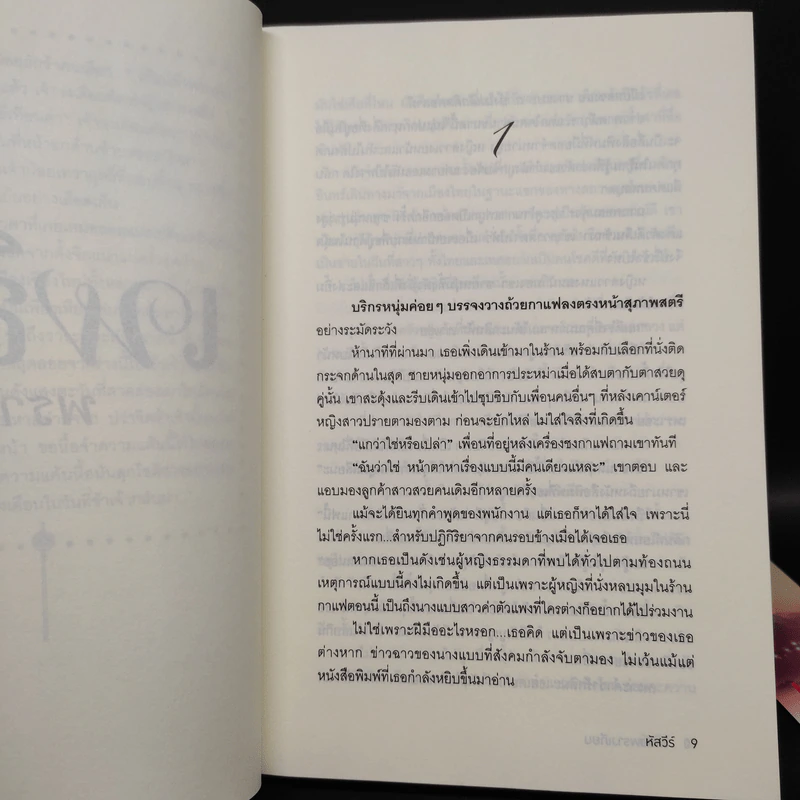 1
บริกรหนุ่มค่อย ๆ บรรจงวางถ้วยกาแฟลงตรงหน้าสุภาพสตรี
อย่างระมัดระวัง
ห้านาทีที่ผ่านมา เธอเพิ่งเดินเข้ามาในร้าน พร้อมกับเลือกที่นั่งติด
กระจกด้านในสุด ชายหนุ่มออกอาการประหม่าเมื่อได้สบตากับตาสวยดุ
คู่นั้น เขาสะดุ้งและรีบเดินเข้าไปซุบซิบกับเพื่อนคนอื่นๆ ที่หลังเคาน์เตอร์
หญิงสาวปรายตามองตาม ก่อนจะยักไหล่ ไม่ใส่ใจสิ่งที่เกิดขึ้น
“แกว่าใช่หรือเปล่า” เพื่อนที่อยู่หลังเครื่องชงกาแฟถามเขาทันที
“ฉันว่าใช่ หน้าตาหาเรื่องแบบนี้มีคนเดียวแหละ” เขาตอบ และ
แอบมองลูกค้าสาวสวยคนเดิมอีกหลายครั้ง
แม้จะได้ยินทุกคำพูดของพนักงาน แต่เธอก็หาได้ใส่ใจ เพราะนี่
ไม่ใช่ครั้งแรก...สำหรับปฏิกิริยาจากคนรอบข้างเมื่อได้เจอเธอ
หากเธอเป็นดังเช่นผู้หญิงธรรมดาที่พบได้ทั่วไปตามท้องถนน
เหตุการณ์แบบนี้คงไม่เกิดขึ้น แต่เป็นเพราะผู้หญิงที่นั่งหลบมุมในร้าน
กาแฟตอนนี้ เป็นถึงนางแบบสาวค่าตัวแพงที่ใครต่างก็อยากได้ไปร่วมงาน
ไม่ใช่เพราะฝีมืออะไรหรอก...เธอคิด แต่เป็นเพราะข่าวของเธอ
ต่างหาก ข่าวฉาวของนางแบบที่สังคมกำลังจับตามอง ไม่เว้นแม้แต่
หนังสือพิมพ์ที่เธอกำลังหยิบขึ้นมาอ่าน
หัสวีร์ 9